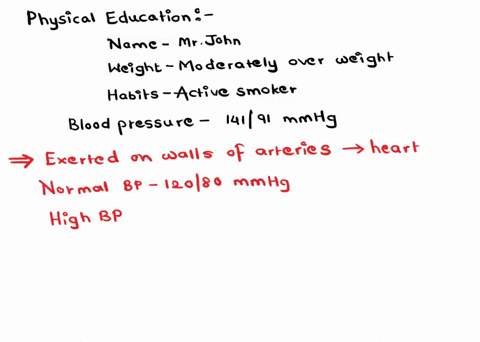 Physical Education:-
Name - Mr. John
Weight - Moderately over weight
Habits - Active smoker
Blood pressure - 141/91 mmHg
⇒ Exerted on walls of arteries → heart
Normal BP - 120/80 mmHg
High BP